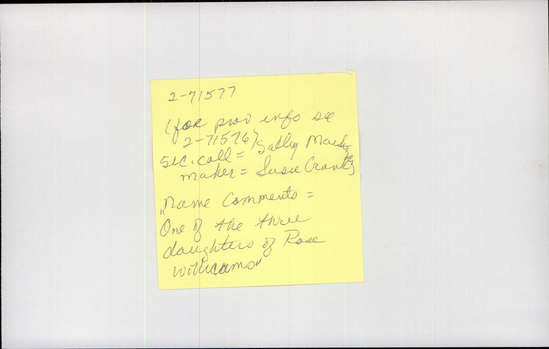 2-71577
(for prov info see
2-71576)
SIC. call = Sally
maker = Susie Crantz
"Name Comments =
One of the three
daughters of Rose
Williams"